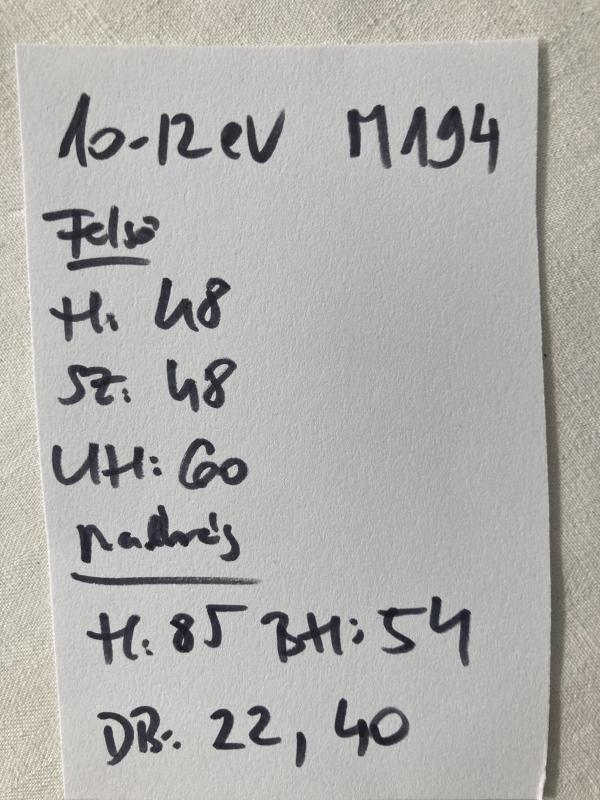 10-12 eV M194
Felső
H: 48
SZ: 48
UH: 60
Nadrág
H: 85 BH: 54
DB: 22, 40